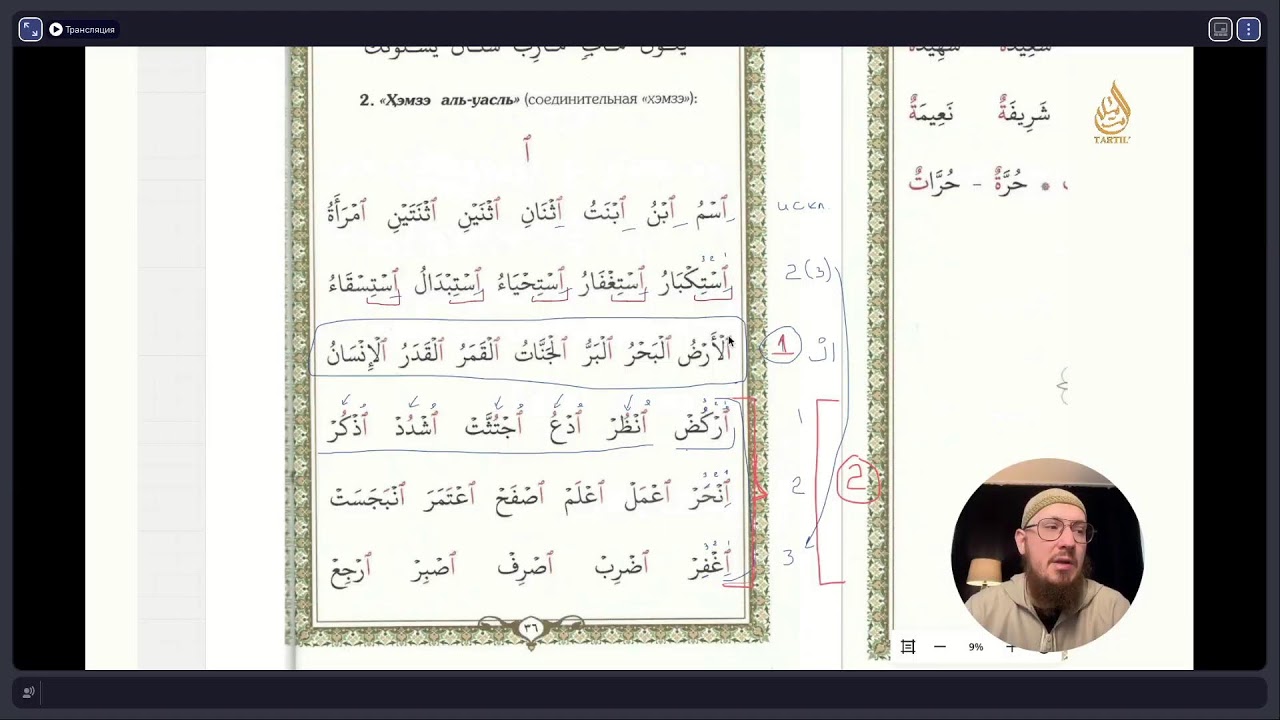 Трансляция
2. «Ҳэмзэ аль-уасль» (соединительная «хэмзэ»):
ٱ
ٱِسْمُ ٱِبْنُ ٱِبْنَتُ ٱِثْنَانِ ٱثْنَيْنِ ٱثْنَتَيْنِ ٱمْرَأَةُ
искл.
ٱِسْتِكْبَارُ ٱِسْتِغْفَارُ ٱِسْتِحْيَاءُ ٱِسْتِبْدَالُ ٱِسْتِسْقَاءُ
1 2 3
2 (3)
ٱلْأَرْضُ ٱلْبَحْرُ ٱلْبَرُّ ٱلْجَنَّاتُ ٱلْقَمَرُ ٱلْقَدَرُ ٱلْإِنْسَانُ
1 الْ
ٱُرْكُضْ ٱُنْظُرْ ٱُدْعُ ٱُجْتُثَّتْ ٱُشْدُدْ ٱُذْكُرْ
1
ٱِنْحَرْ ٱعْمَلْ ٱعْلَمْ ٱصْفَحْ ٱعْتَمَرَ ٱنْبَجَسَتْ
2
2
ٱِغْفِرْ ٱضْرِبْ ٱصْرِفْ ٱصْبِرْ ٱرْجِعْ
3
٣٦
شَرِيفَةٌ نَعِيمَةٌ
حُرَّةٌ - حُرَّاتٌ
TARTIL
9%